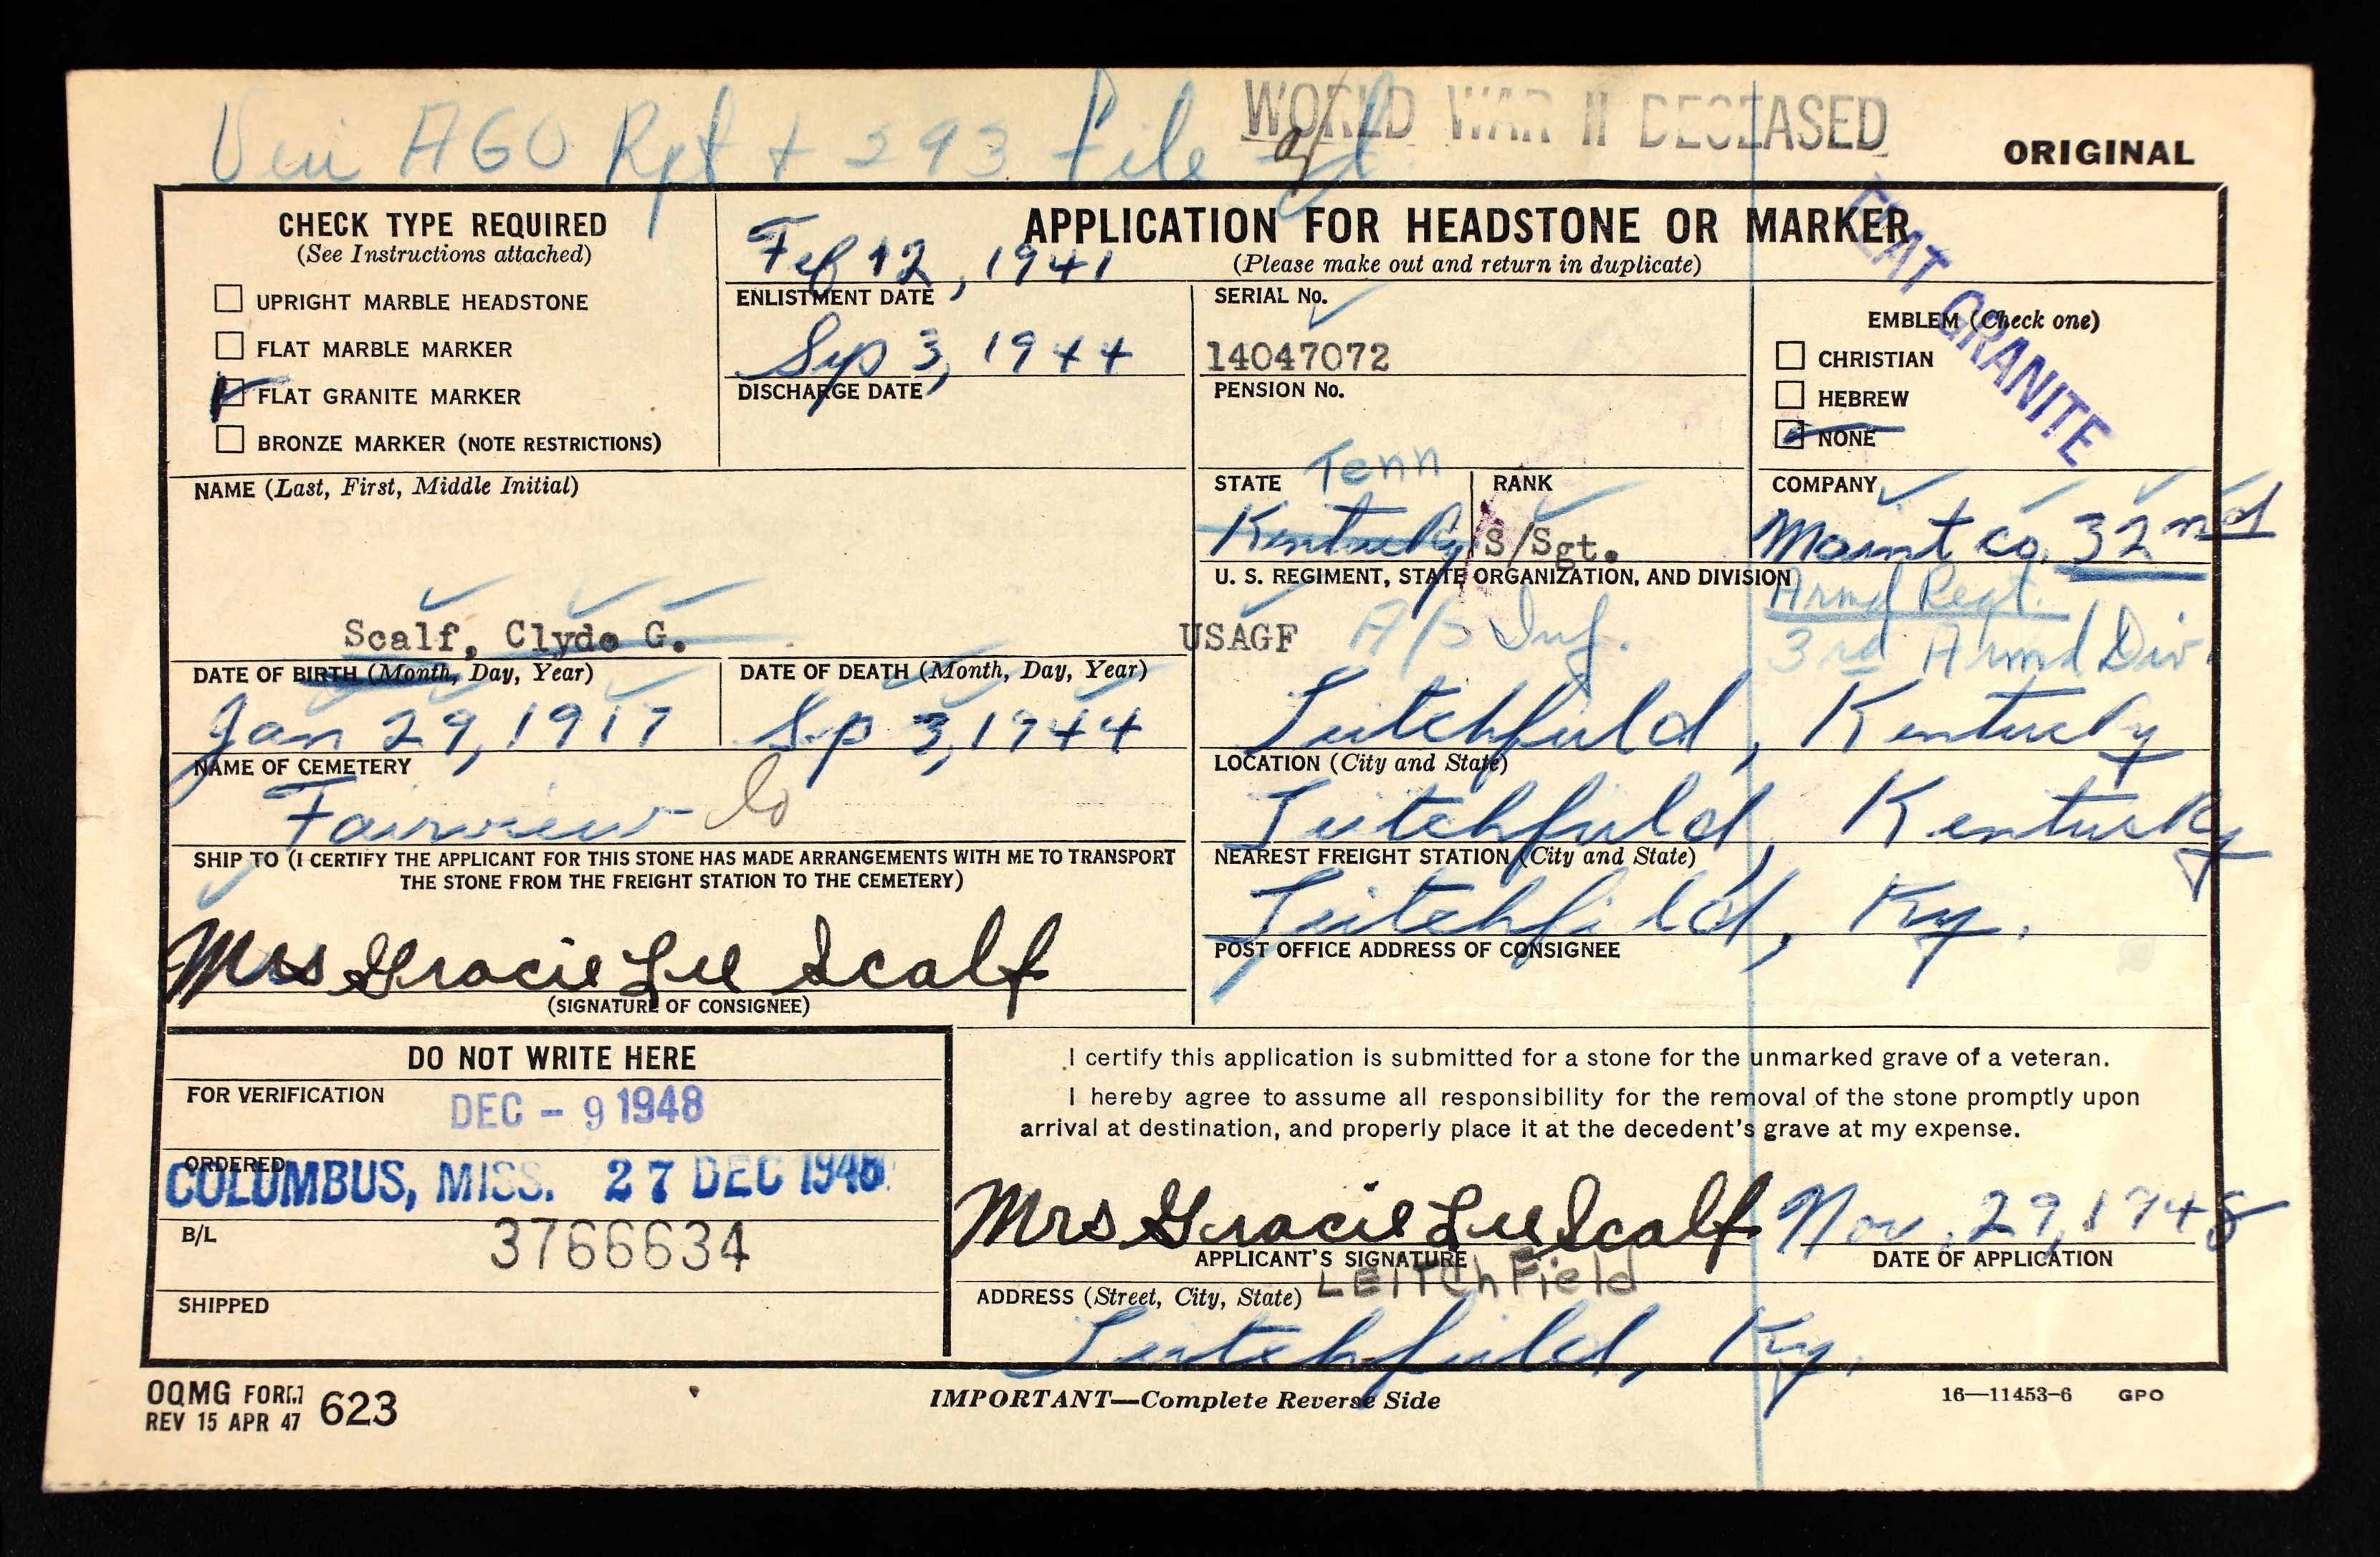 Veri AGO Rpt + 293 File
WORLD WAR II DECEASED
ORIGINAL
CHECK TYPE REQUIRED
(See Instructions attached)
UPRIGHT MARBLE HEADSTONE
FLAT MARBLE MARKER
FLAT GRANITE MARKER
BRONZE MARKER (NOTE RESTRICTIONS)
APPLICATION FOR HEADSTONE OR MARKER
(Please make out and return in duplicate)
Feb 12, 1941
ENLISTMENT DATE
Sep 3, 1944
DISCHARGE DATE
SERIAL No.
14047072
PENSION No.
FLAT GRANITE
EMBLEM (Check one)
CHRISTIAN
HEBREW
NONE
NAME (Last, First, Middle Initial)
Scalf, Clyde G.
STATE Tenn
Kentucky
RANK
S/Sgt.
COMPANY
Maint co. 32nd
U. S. REGIMENT, STATE ORGANIZATION, AND DIVISION
Armd Regt.
USAGF A/S Inf. 3rd Armd Div.
DATE OF BIRTH (Month, Day, Year)
Jan 29, 1917
DATE OF DEATH (Month, Day, Year)
Sep 3, 1944
Leitchfield, Kentucky
NAME OF CEMETERY
Fairview
LOCATION (City and State)
Leitchfield, Kentucky
SHIP TO (I CERTIFY THE APPLICANT FOR THIS STONE HAS MADE ARRANGEMENTS WITH ME TO TRANSPORT
THE STONE FROM THE FREIGHT STATION TO THE CEMETERY)
NEAREST FREIGHT STATION (City and State)
Leitchfield, Ky.
POST OFFICE ADDRESS OF CONSIGNEE
Mrs Gracie Lee Scalf
(SIGNATURE OF CONSIGNEE)
DO NOT WRITE HERE
FOR VERIFICATION
DEC - 9 1948
ORDERED
COLUMBUS, MISS. 27 DEC 1948
B/L
3766634
SHIPPED
I certify this application is submitted for a stone for the unmarked grave of a veteran.
I hereby agree to assume all responsibility for the removal of the stone promptly upon
arrival at destination, and properly place it at the decedent's grave at my expense.
Mrs Gracie Lee Scalf Nov. 29, 1948
APPLICANT'S SIGNATURE DATE OF APPLICATION
LEITChField
ADDRESS (Street, City, State)
Leitchfield, Ky.
OQMG FORM
REV 15 APR 47 623
IMPORTANT—Complete Reverse Side
16—11453-6 GPO